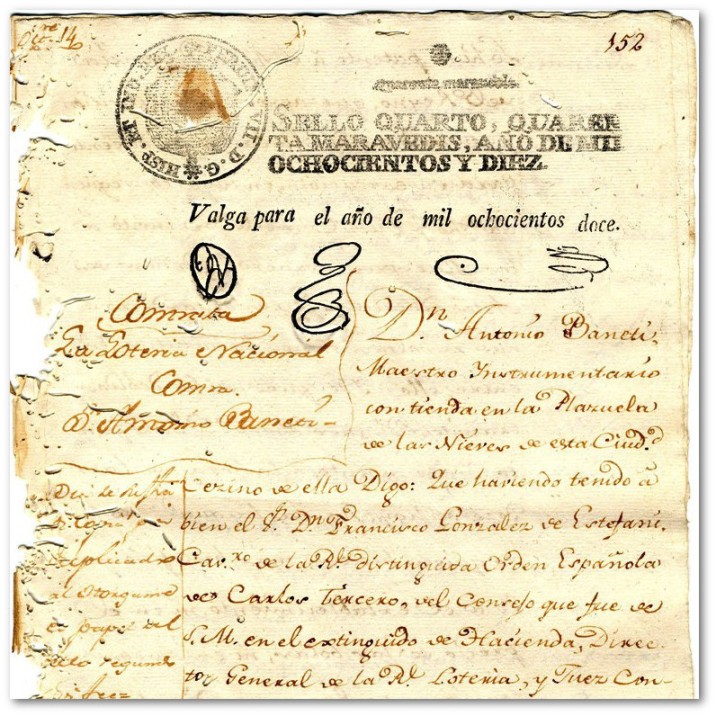 Dre 14
152
FERDIN. VII. D. G. HISP. ET IND. REX
Quarenta maravedis.
SELLO QUARTO, QUAREN
TA MARAVEDIS, AÑO DE MIL
OCHOCIENTOS Y DIEZ.
Valga para el año de mil ochocientos doce.
Contrata
La Loteria Nacional
Contra
D. Antonio Baneti
Dn Antonio Baneti,
Maestro Instrumentario
con tienda en la Plazuela
de las Nieves de esta Ciudd
Vezino de ella Digo: Que haviendo tenido á
bien el Sr. Dn Francisco Gonzalez de Estefani,
Cavro de la Rl distinguida Orden Española
de Carlos Tercero, del Consejo que fue de
S. M. en el extinguido de Hacienda, Direc
tor General de la Rl Loteria, y Juez Con-
Dia de su fha
d. Copia pa
duplicado
al Otorgante
en papel del
sello segundo